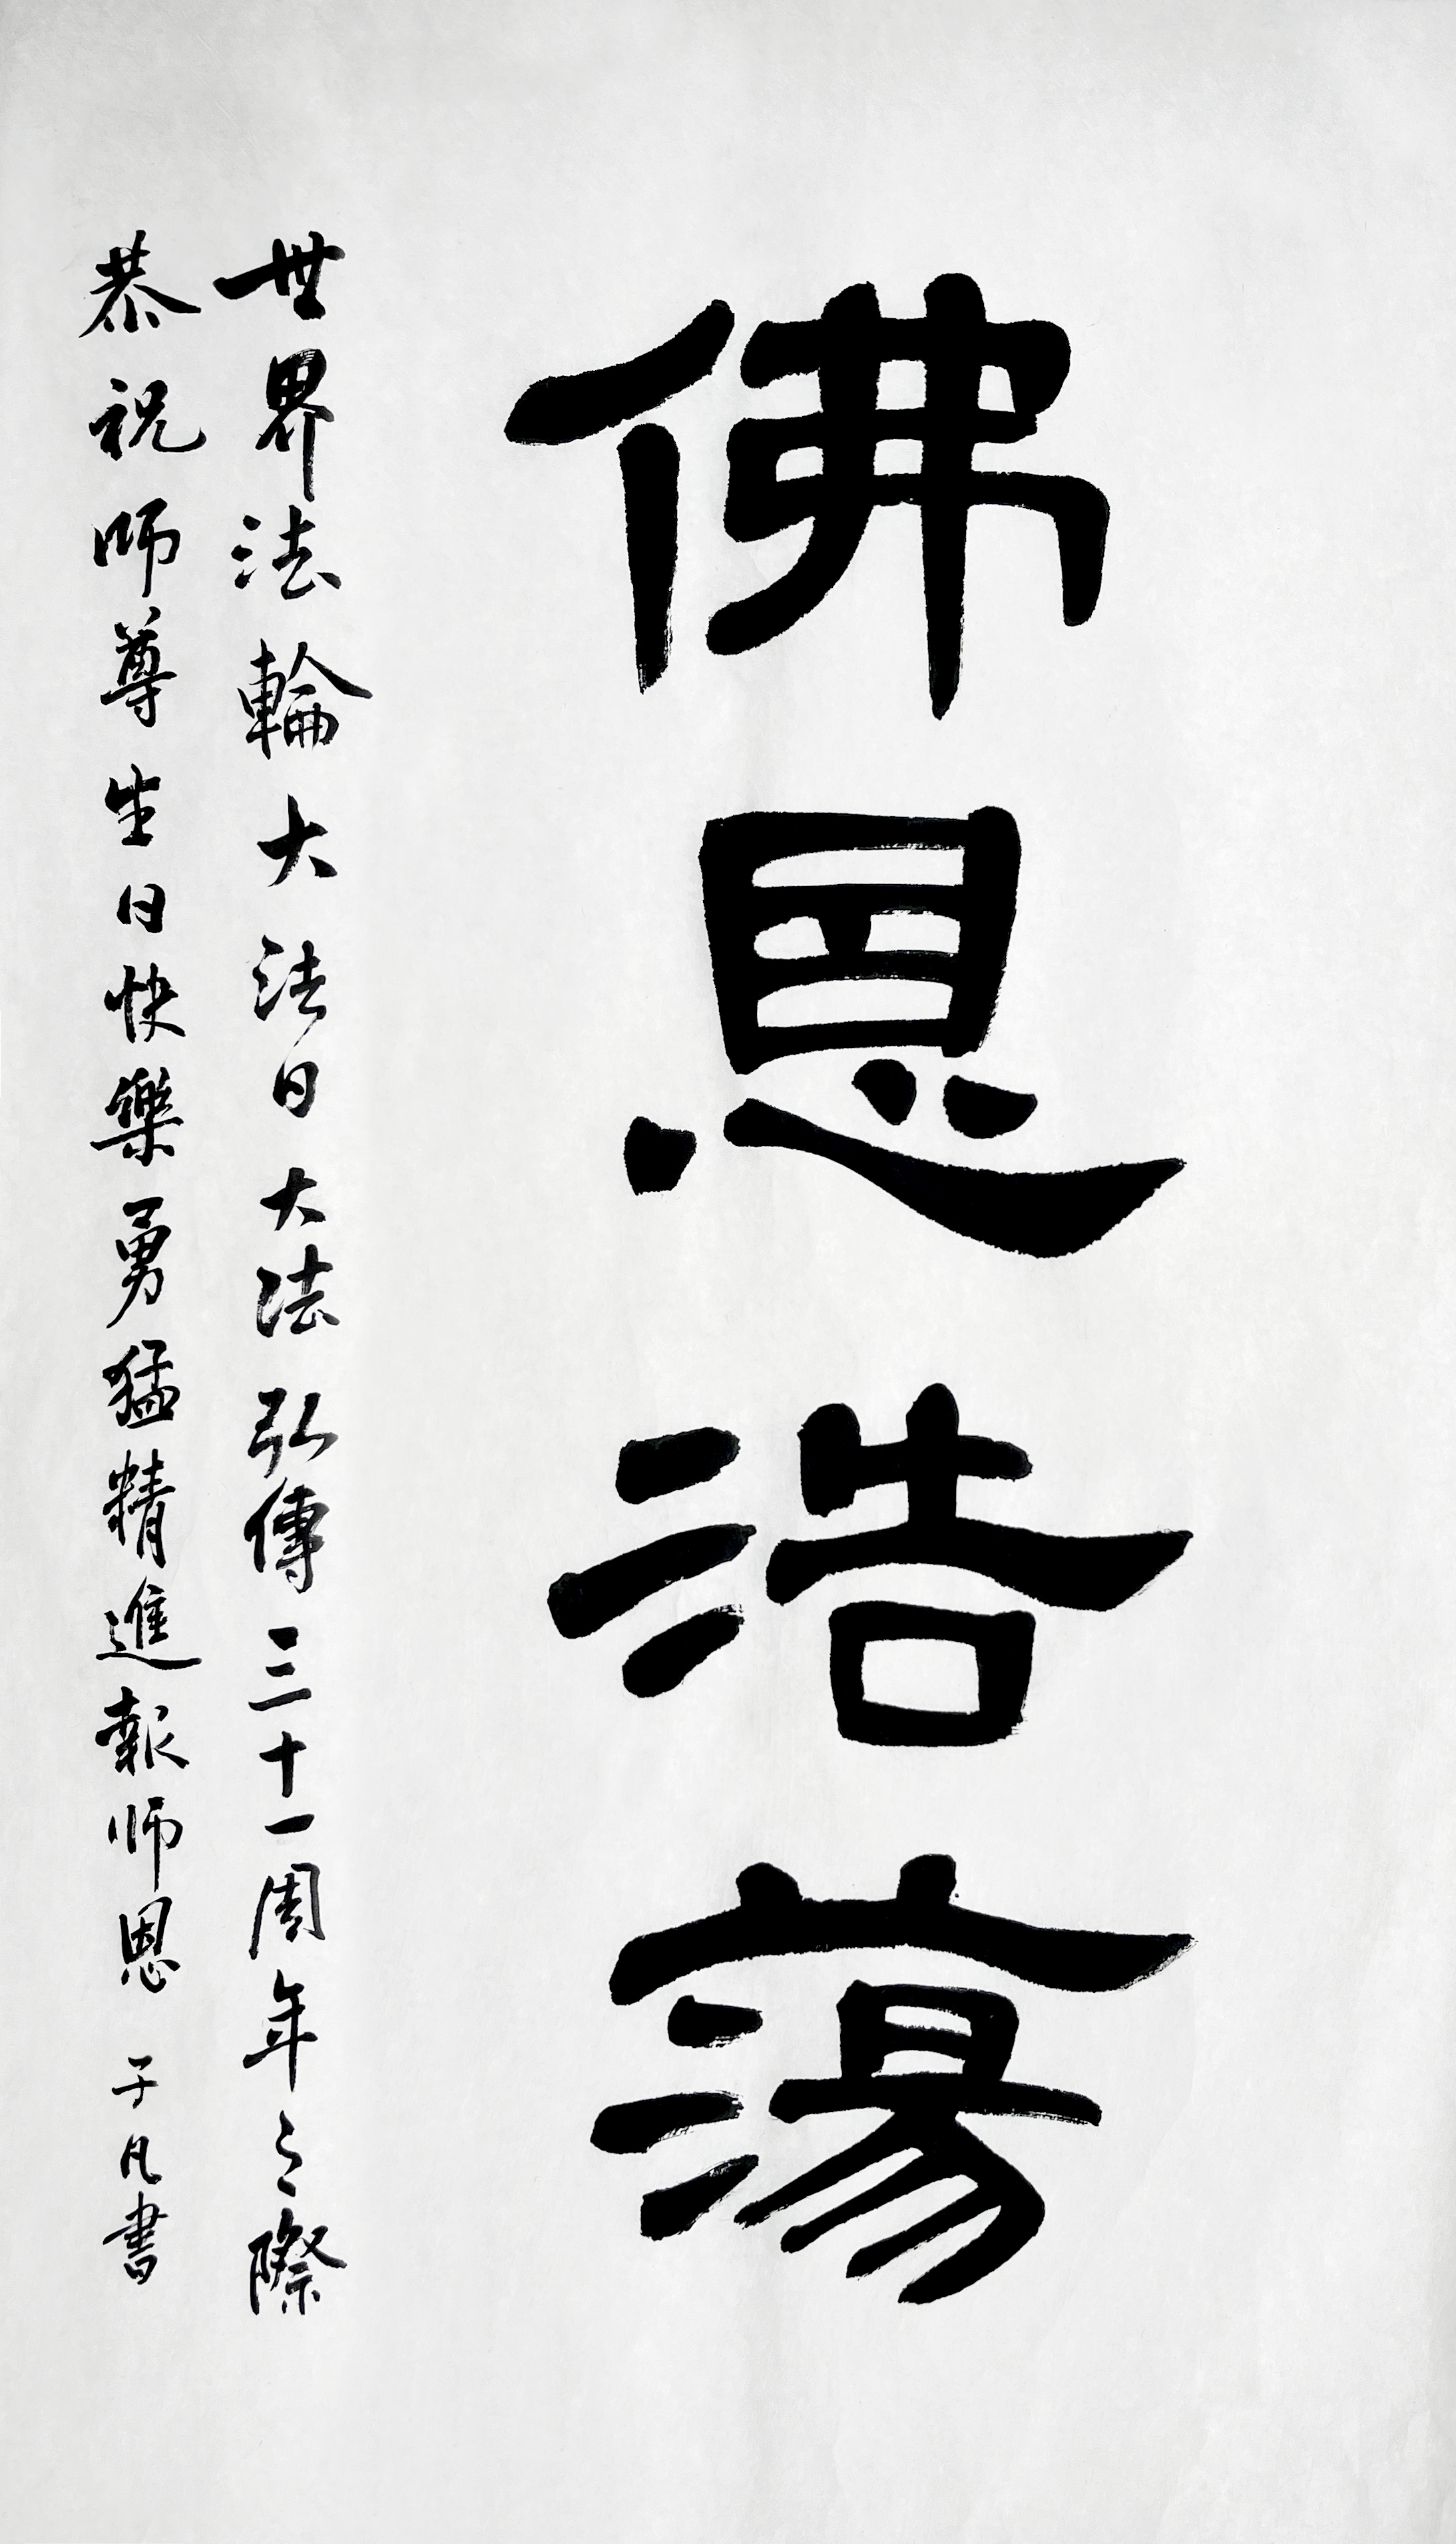 佛恩浩蕩
世界法輪大法日大法弘傳三十一周年之際
恭祝师尊生日快樂勇猛精進報师恩 于凡書